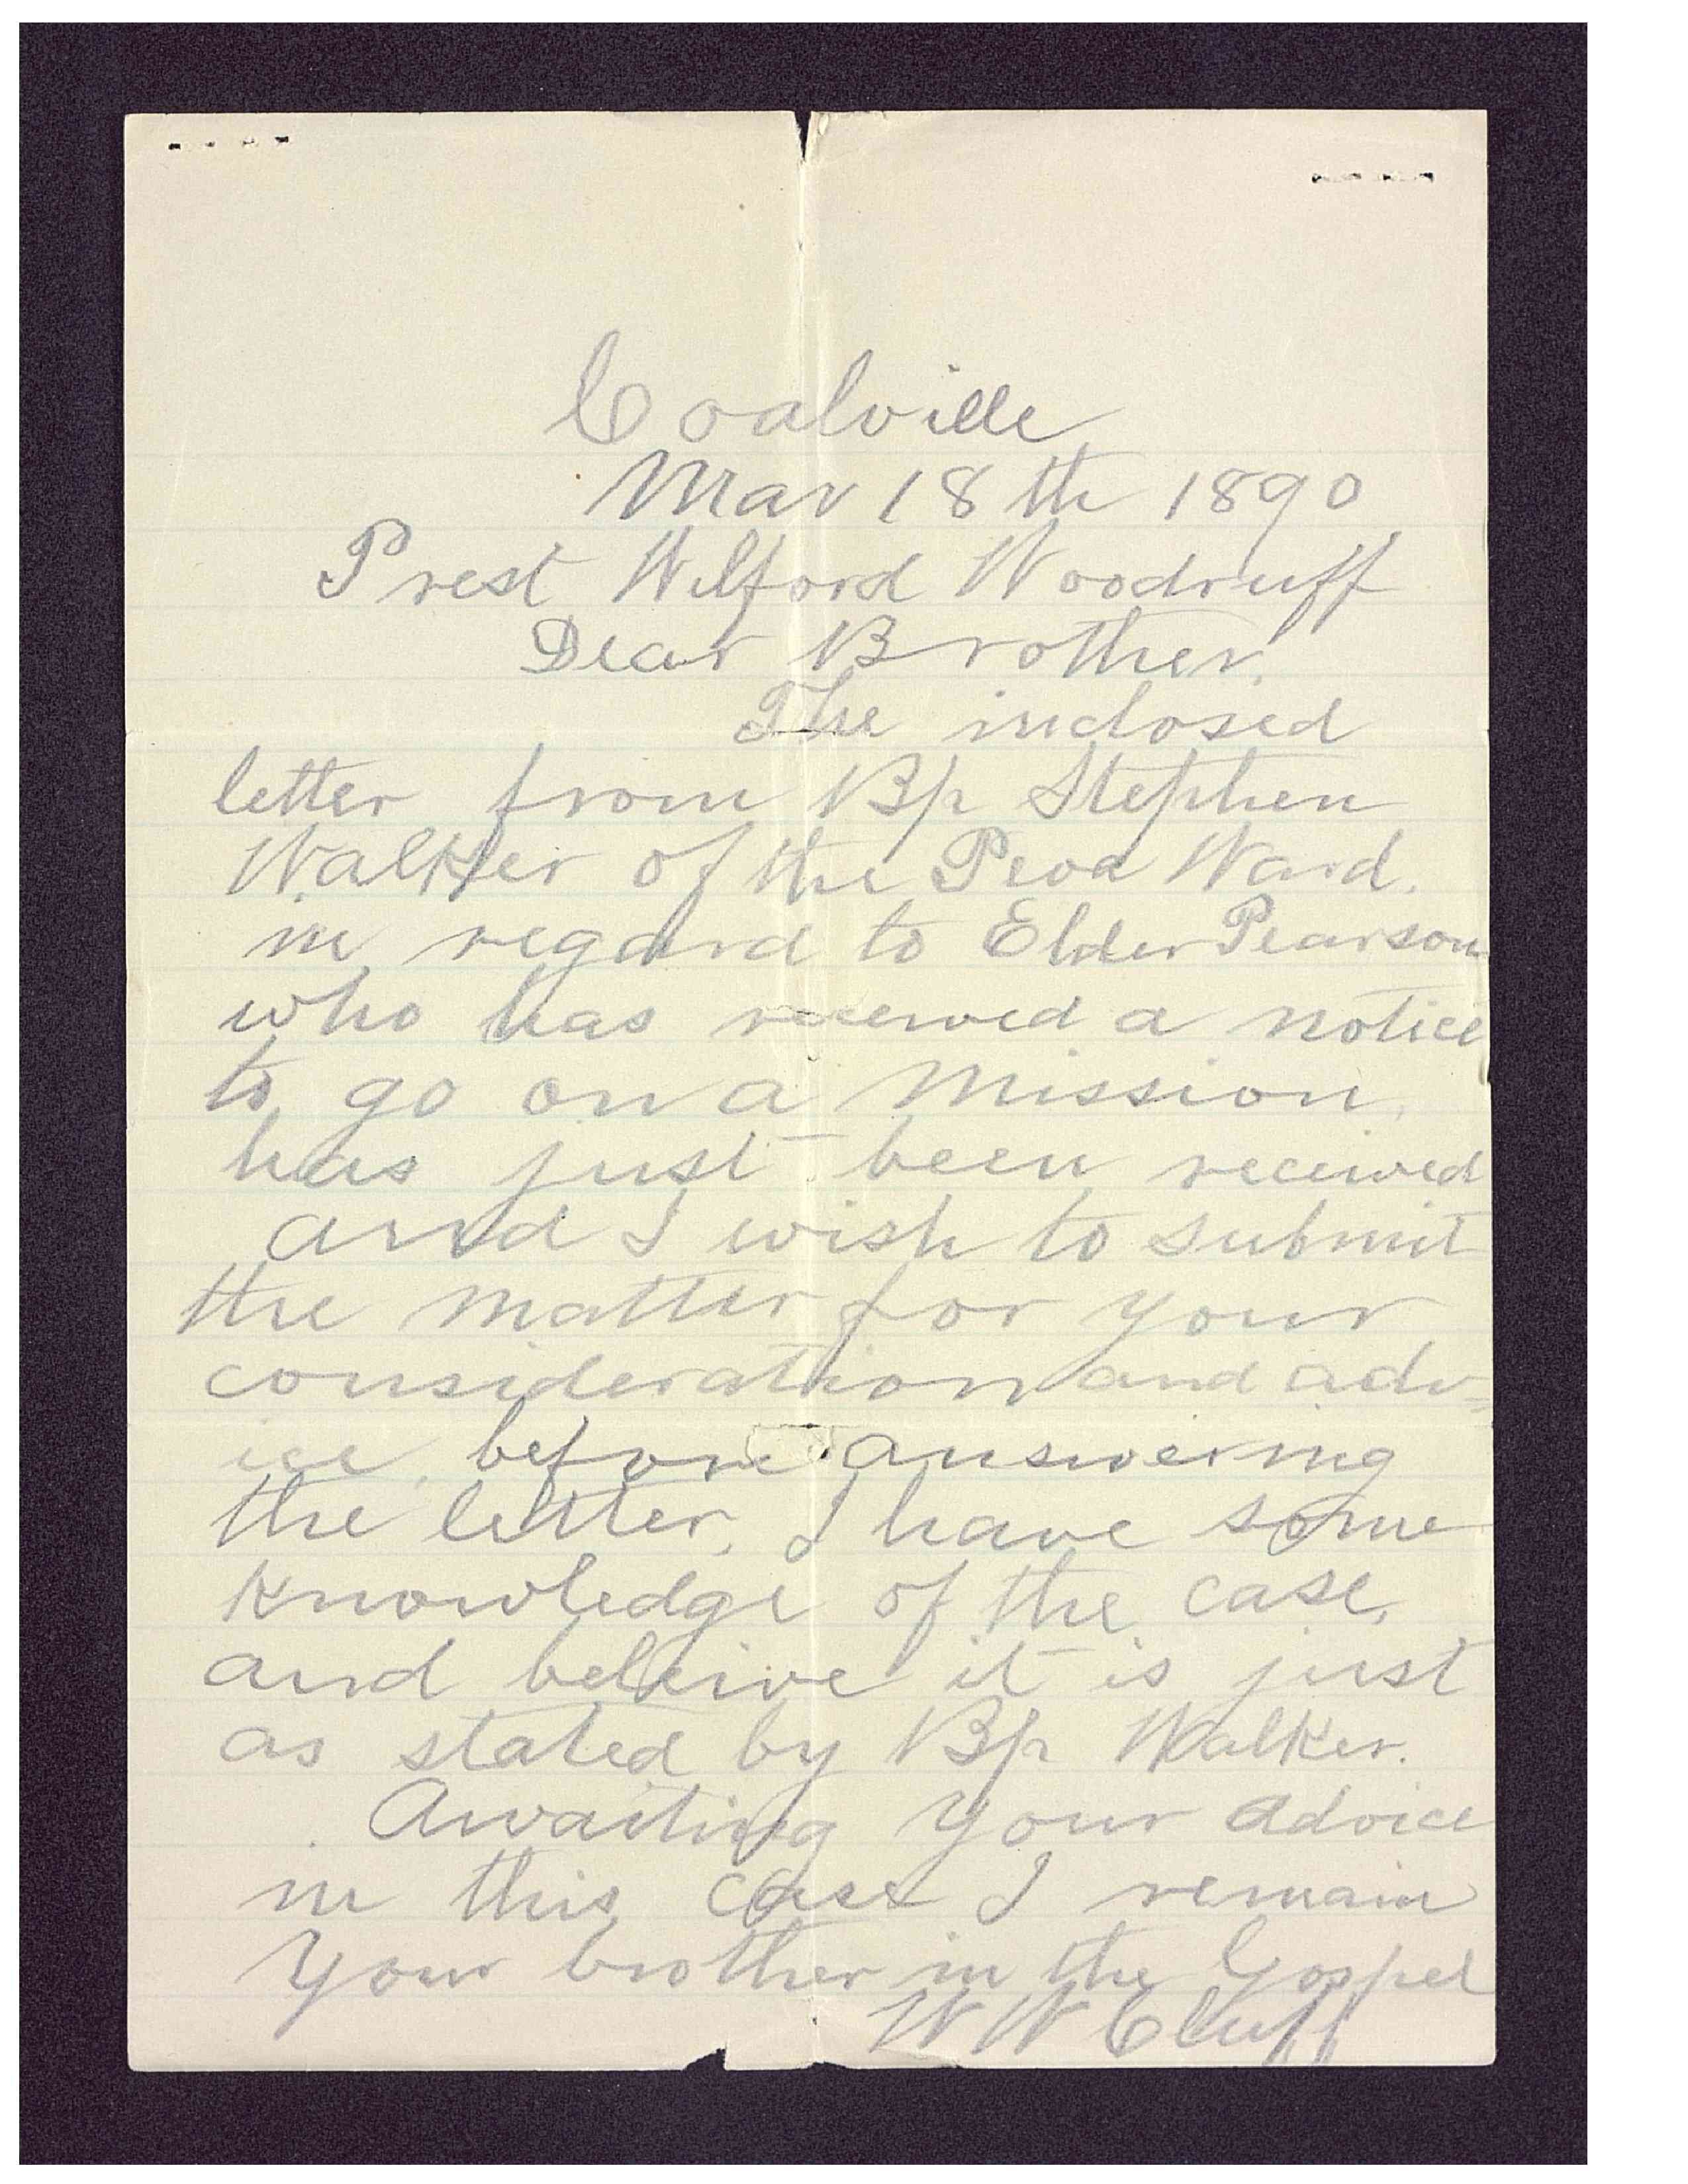 Coalville
Mar 18th 1890
Prest Wilford Woodruff
Dear Brother.
The inclosed
letter from Bp Stephen
Walker of the Peoa Ward.
in regard to Elder Pearson
who has received a notice
to go on a mission,
has just been received
and I wish to submit
the matter for your
consideration and adv=
ice, before answering
the letter, I have some
knowledge of the case,
and beleive it is just
as stated by Bp Walker.
Awaiting your advice
in this case I remain
your brother in the Gospel
W W Cluff